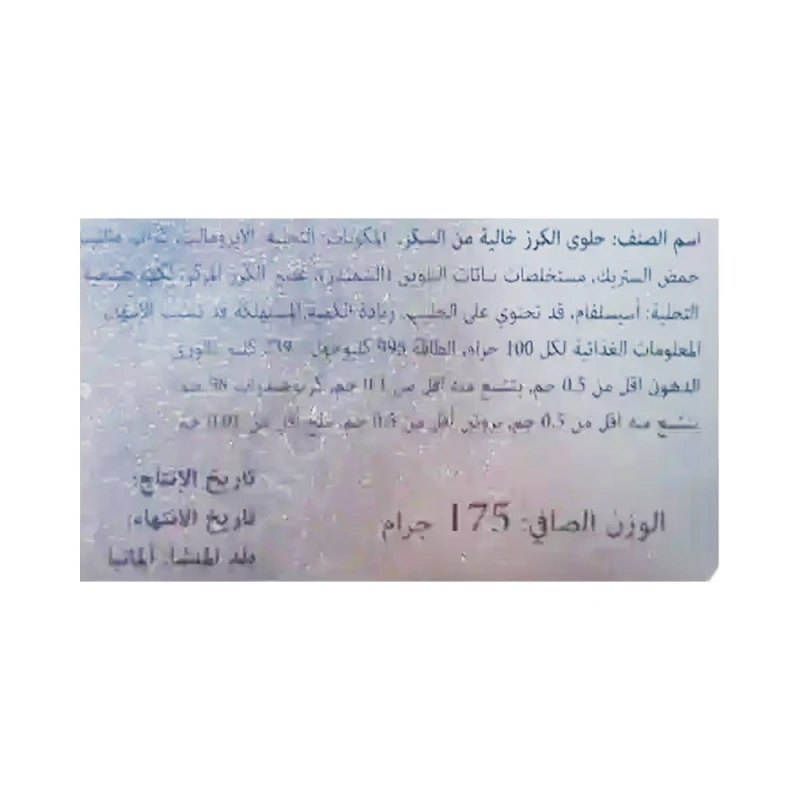 اسم الصنف: حلوى الكرز خالية من السكر. المكونات: التحلية الايزومالت،
حمض الستريك، مستخلصات نباتات التلوين (الشمندر)، الكرز المركز، نكهة طبيعية
التحلية: أسيسلفام، قد تحتوي على الحليب. زيادة الكمية المستهلكة قد تسبب الاسهال.
المعلومات الغذائية لكل 100 جرام، الطاقة 995 كيلوجول
الدهون اقل من 0.5 جم، يتشبع منه اقل من 0.1 جم، كربوهيدرات 98 جم
يتشبع منه اقل من 0.5 جم، بروتين أقل من 0.5 جم، ملح اقل من 0.01 جم
الوزن الصافي: 175 جرام
تاريخ الإنتاج:
تاريخ الانتهاء:
بلد المنشأ: ألمانيا